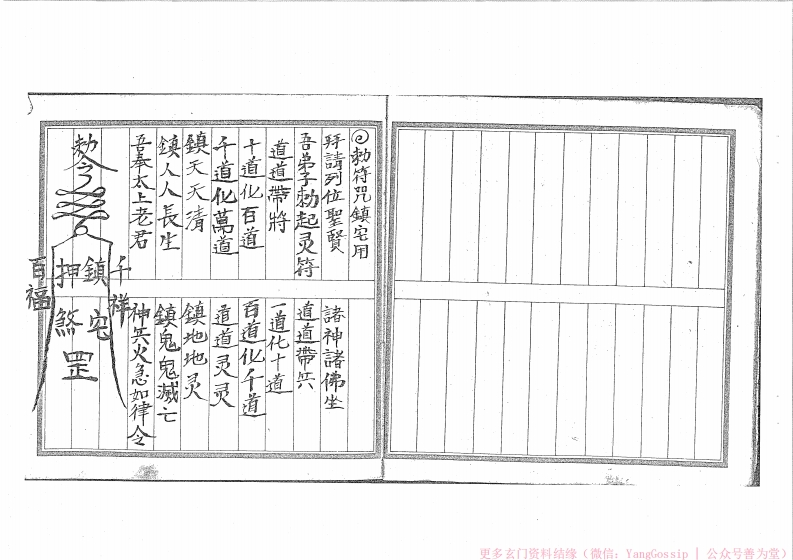 敕符咒鎮宅用
拜請列位聖賢 諸神諸佛坐
吾弟子勅起灵符 道道帶兵
道道帶將 一道化十道
十道化百道 百道化千道
千道化萬道 道道灵灵
鎮天天清 鎮地地灵
鎮人人長生 鎮鬼鬼滅亡
吾奉太上老君 神兵火急如律令
勅令
千祥
鎮宅
押煞
罡
百福
更多玄门资料结缘（微信：YangGossip | 公众号善为堂）